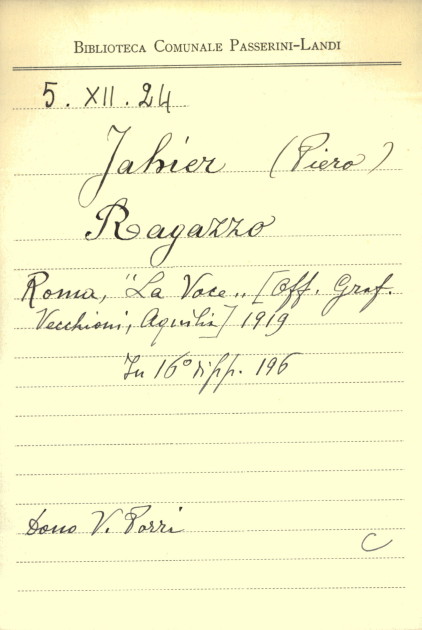 BIBLIOTECA COMUNALE PASSERINI-LANDI
5. XII. 24
Jahier (Piero)
Ragazzo
Roma, "La Voce„ [Off. Graf.
Vecchioni, Aquila] 1919
In 16° di pp. 196
Dono V. Porri
C